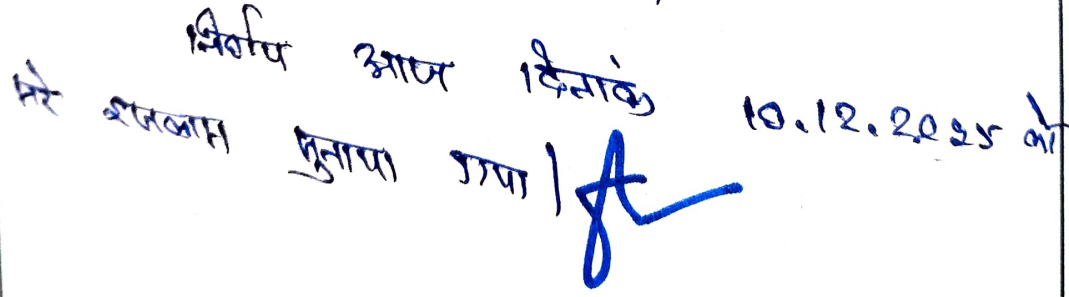 निर्णय आज दिनांक 10.12.2025 को
सरे इजलास सुनाया गया।